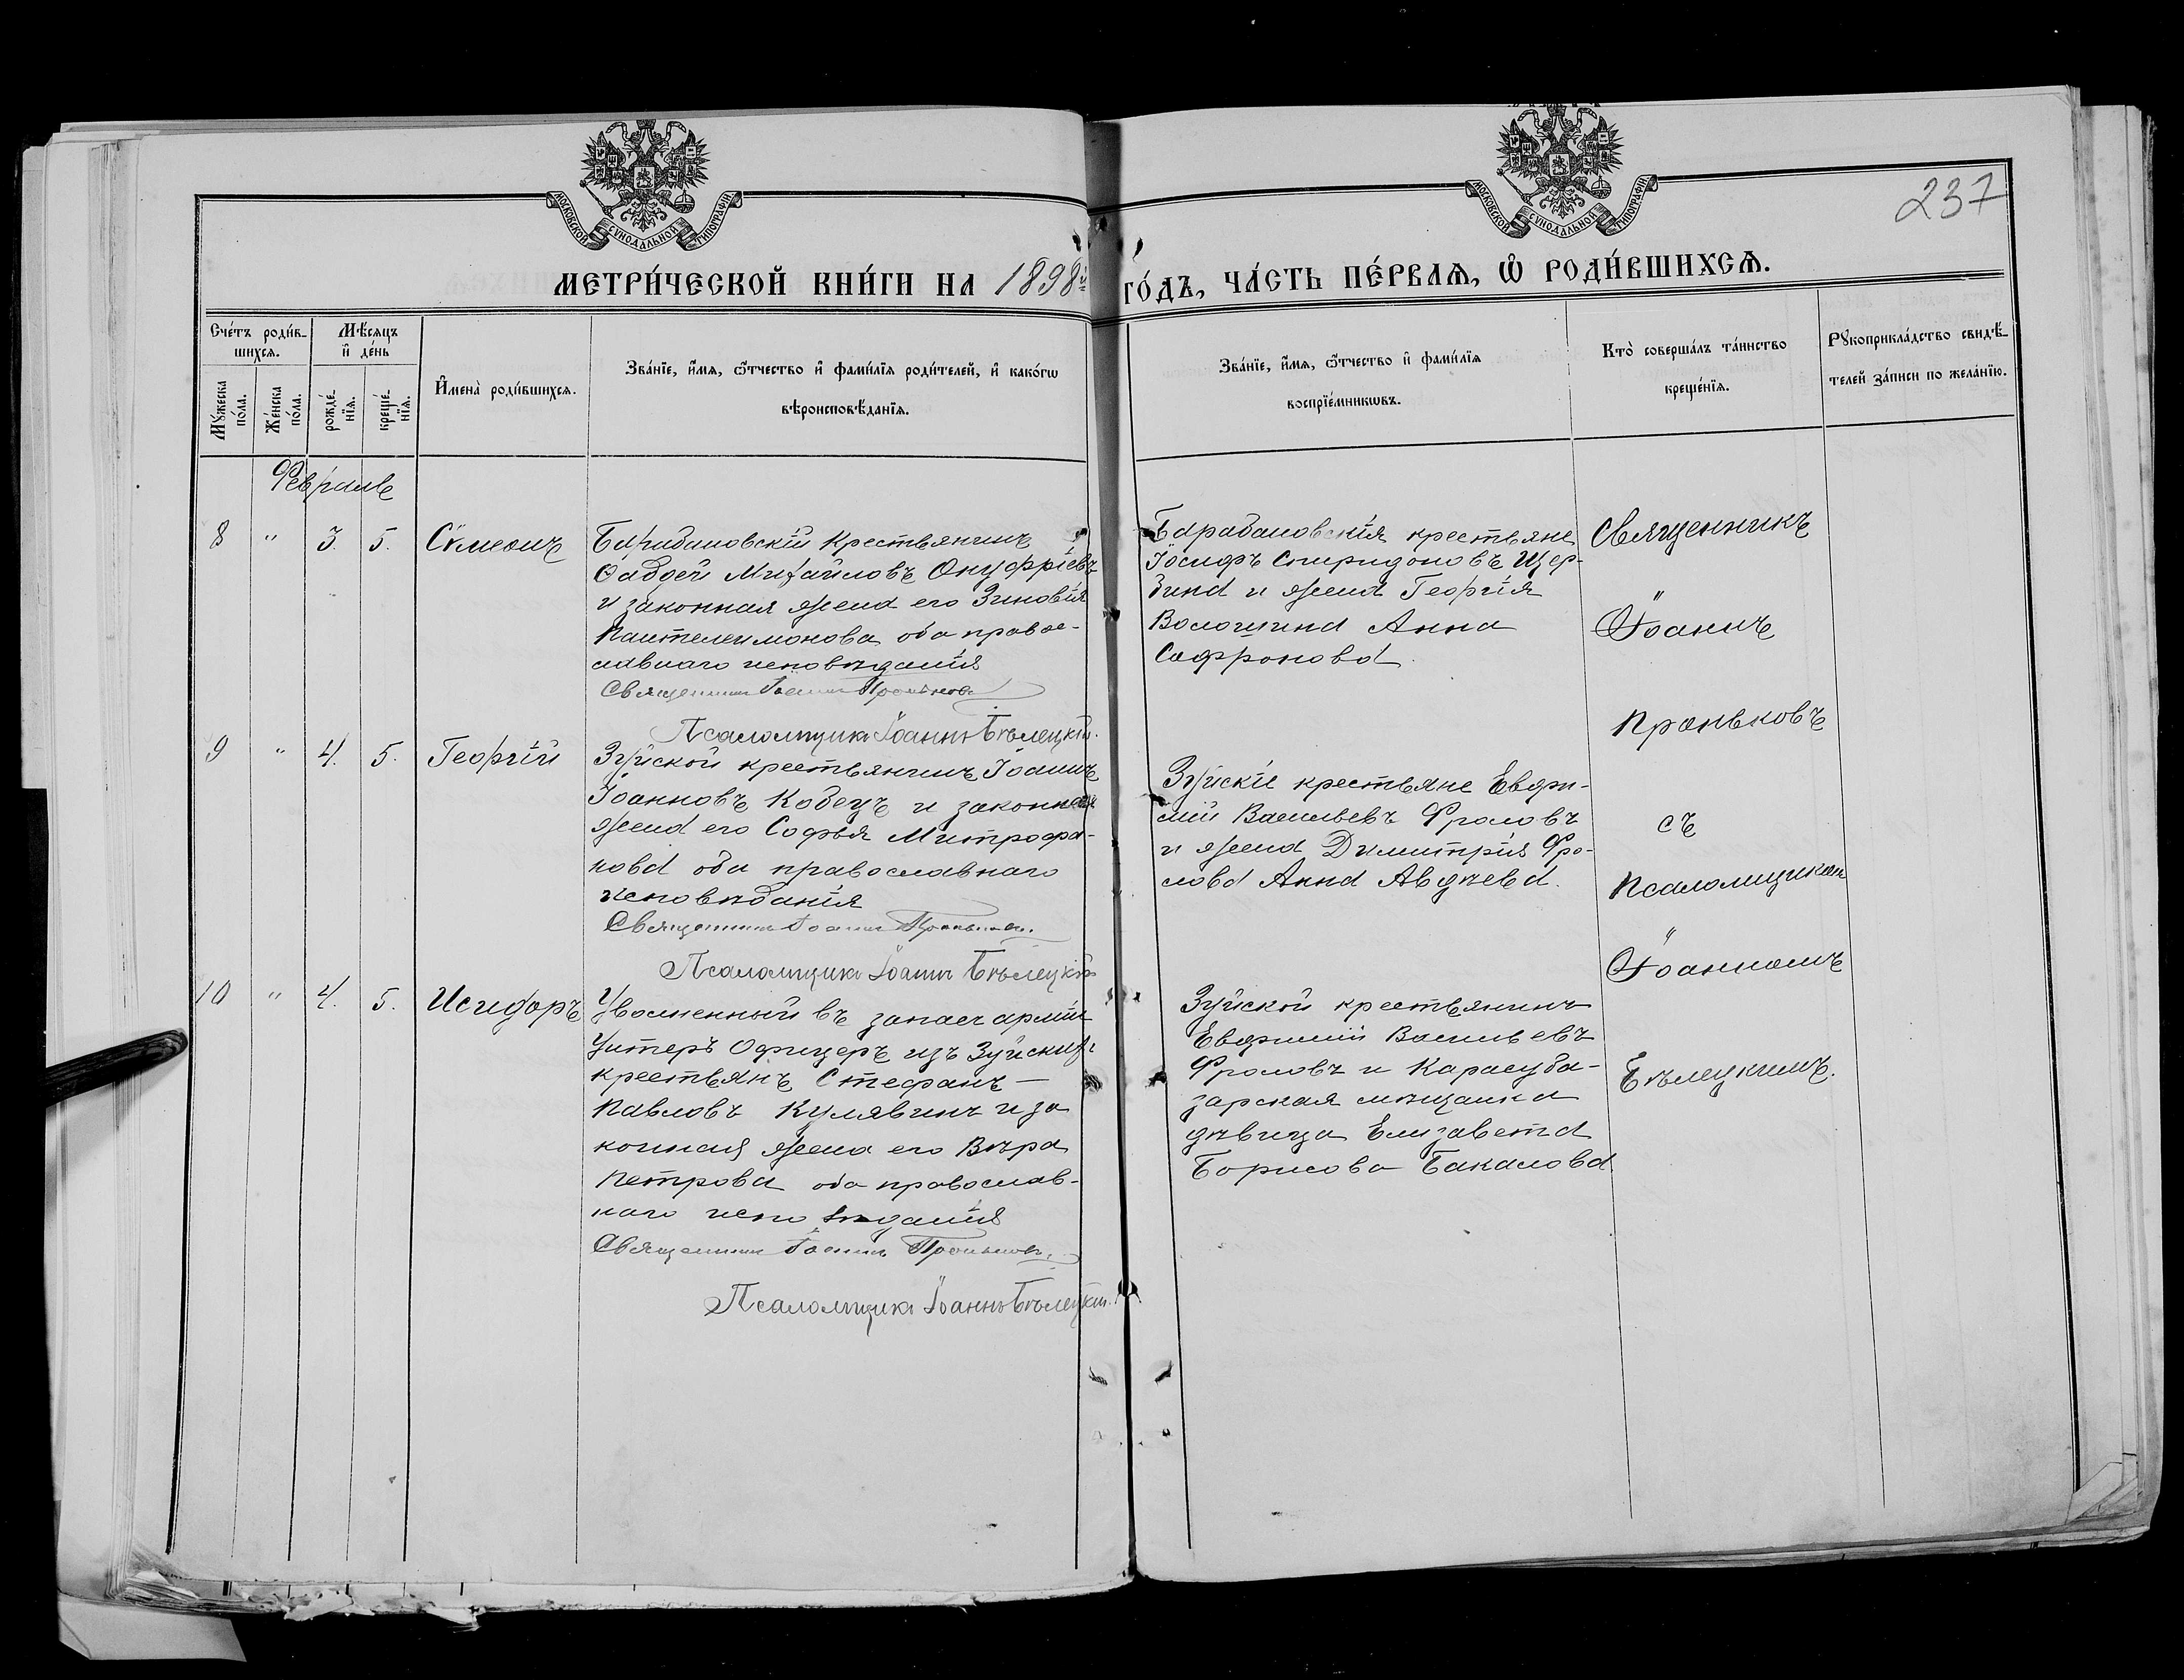 237
МОСКОВСКОЙ СѴНОДАЛЬНОЙ ТИПОГРАФІИ
МОСКОВСКОЙ СѴНОДАЛЬНОЙ ТИПОГРАФІИ
МЕТРИ́ЧЕСКОЙ КНИ́ГИ НА 1898й ГО́ДЪ, ЧА́СТЬ ПЕ́РВАѦ, Ѡ҆ РОДИ́ВШИХСѦ.
Сче́тъ роди́в-
шихсѧ.
Мꙋ́жеска по́ла.
Же́нска по́ла.
Мѣ́сѧцъ и҆ де́нь
рожде́нїѧ.
креще́нїѧ.
И҆мена̀ роди́вшихсѧ.
Зва́нїе, и҆́мѧ, ѻ҆́тчество и҆ фами́лїѧ роди́телей, и҆ како́гѡ
вѣроисповѣ́данїѧ.
Зва́нїе, и҆́мѧ, ѻ҆́тчество и҆ фами́лїѧ
воспрїе́мникѡвъ.
Кто̀ соверша́лъ та́инство
креще́нїѧ.
Рꙋкоприкла́дство свидѣ́-
телей за́писи по жела́нїю.
Февраль
8 " 3. 5. Сѵмеонъ
Барабановскій крестьянинъ
Ѳаддей Михайловъ Онуфріевъ
и законная жена его Зиновія
Пантелеимонова оба право-
славнаго исповѣданія
Священникъ Іоаннъ Проньковъ
Псаломщикъ Іоаннъ Бѣлецкій.
Барабановскія крестьяне
Іосифъ Спиридоновъ Щер-
бина и жена Георгія
Волошина Анна
Софронова.
Священникъ
Іоаннъ
Проньковъ
съ
Псаломщикомъ
Іоанномъ
Бѣлецкимъ.
9 " 4. 5. Георгій
Зуйской крестьянинъ Іоаннъ
Іоанновъ Кобецъ и законная
жена его Софья Митрофа-
нова оба православнаго
исповѣданія
Священникъ Іоаннъ Проньковъ.
Псаломщикъ Іоаннъ Бѣлецкій
Зуйскіе крестьяне Евфи-
мій Васильевъ Фроловъ
и жена Димитрія Фро-
лова Анна Авдѣева.
10 " 4. 5. Исидоръ
Уволенный въ запасъ арміи
Унтеръ Офицеръ изъ Зуйскихъ
крестьянъ Стефанъ —
Павловъ Кулявинъ и за
конная жена его Вѣра
Петрова оба православ-
наго исповѣданія
Священникъ Іоаннъ Проньковъ.
Псаломщикъ Іоаннъ Бѣлецкій.
Зуйской крестьянинъ
Евфимій Васильевъ
Фроловъ и Карасуба-
зарская мѣщанка
дѣвица Елизавета
Борисова Бакалова